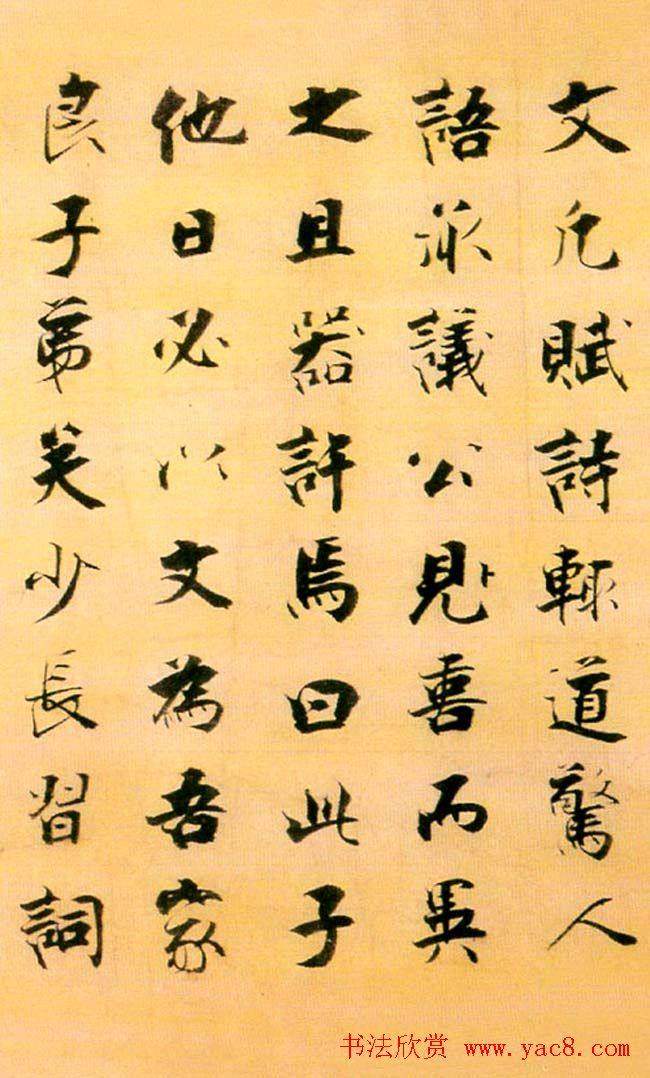 文凡賦詩輙道驚人
語承議公見喜而異
之且器許焉曰此子
他日必以文為吾家
良子弟矣少長習詞
书法欣赏 www.yac8.com